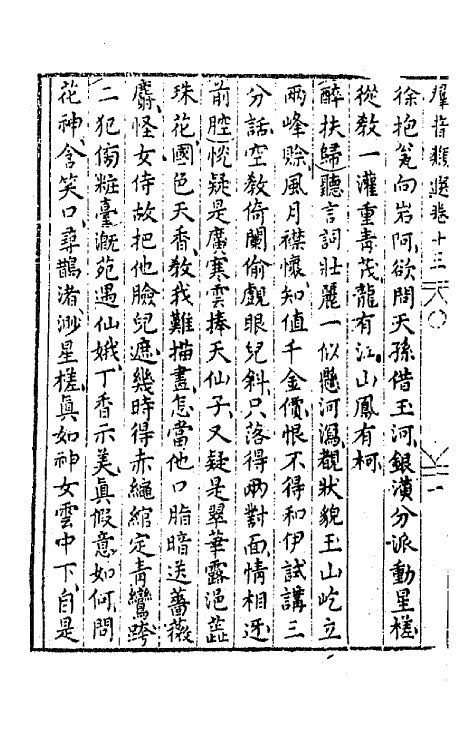 羣音類選卷十三
徐抱瓮向岩阿欲問天孫借玉河銀漢分派動星槎
從教一灌重青茂龍有江山鳳有柯
醉扶歸聽言詞壯麗一似懸河瀉觀狀貌玉山屹立
兩峰賒風月襟懷知值千金價恨不得和伊試講三
分話空教倚闌偷覷眼兒斜只落得兩對面情相迓
前腔恍疑是廣寒雲捧天仙子又疑是翠華露浥蕋
珠花國色天香教我難描畫怎當他口脂暗送薔薇
麝怪女侍故把他臉兒遮幾時得赤繩綰定青鸞跨
二犯傍粧臺漑苑遇仙娥丁香示美真假意如何問
花神含笑口尋鵲渚渺星槎真如神女雲中下自是